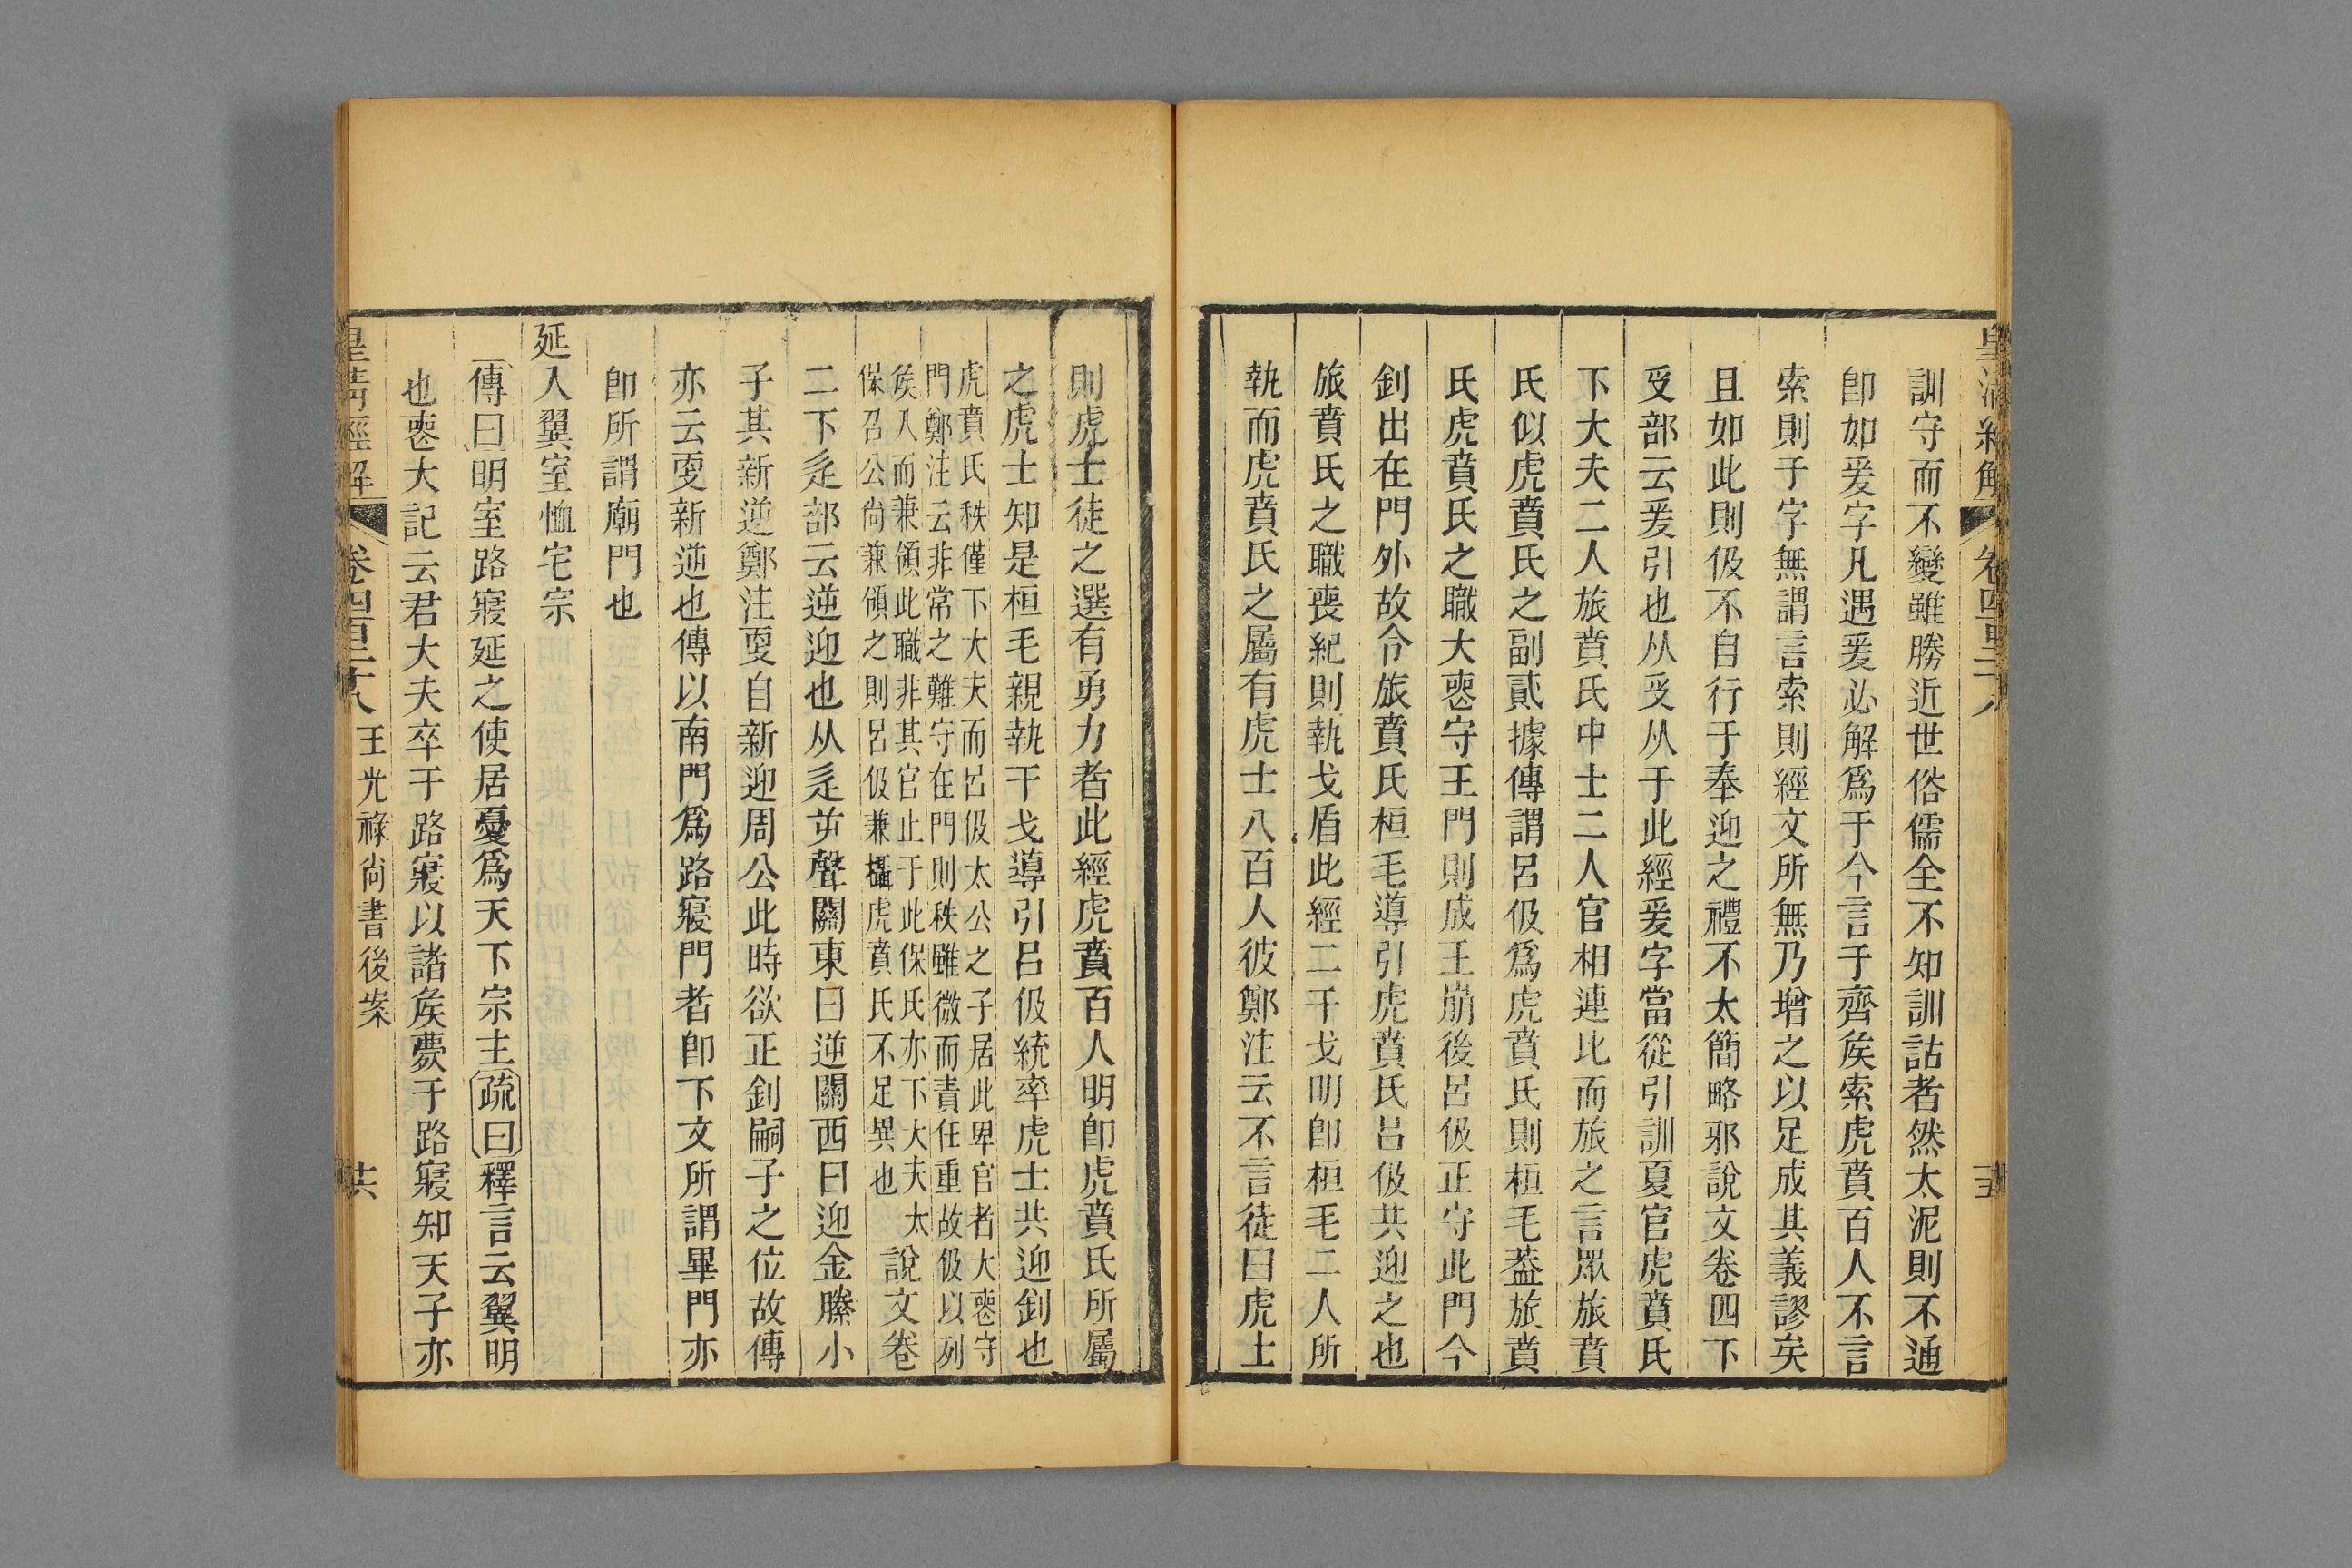 皇清經解
卷四百二十八
十五
訓守而不變雖勝近世俗儒全不知訓詁者然太泥則不通
卽如爰字凡遇爰必解爲于今言于齊矦索虎賁百人不言
索則于字無謂言索則經文所無乃增之以足成其義謬矣
且如此則伋不自行于奉迎之禮不太簡略邪說文卷四下
𠬪部云爰引也从𠬪从于此經爰字當從引訓夏官虎賁氏
下大夫二人旅賁氏中士二人官相連比而旅之言眾旅賁
氏似虎賁氏之副貳據傳謂呂伋爲虎賁氏則桓毛葢旅賁
氏虎賁氏之職大喪守王門則成王崩後呂伋正守此門今
釗出在門外故令旅賁氏桓毛導引虎賁氏呂伋共迎之也
旅賁氏之職喪紀則執戈盾此經二干戈明卽桓毛二人所
執而虎賁氏之屬有虎士八百人彼鄭注云不言徒曰虎士
則虎士徒之選有勇力者此經虎賁百人明卽虎賁氏所屬
之虎士知是桓毛親執干戈導引呂伋統率虎士共迎釗也
虎賁氏秩僅下大夫而呂伋太公之子居此卑官者大喪守
門鄭注云非常之難守在門則秩雖微而責任重故伋以列
矦入而兼領此職非其官止于此保氏亦下大夫太
保召公尙兼領之則呂伋兼攝虎賁氏不足異也
說文卷
二下辵部云逆迎也从辵屰聲關東曰逆關西曰迎金縢小
子其新逆鄭注耎自新迎周公此時欲正釗嗣子之位故傳
亦云耎新逆也傳以南門爲路寢門者卽下文所謂畢門亦
卽所謂廟門也
延入翼室恤宅宗
傳曰明室路寢延之使居憂爲天下宗主疏曰釋言云翼明
也喪大記云君大夫卒于路寢以諸矦薨于路寢知天子亦
皇清經解
卷四百二十八
王光祿尙書後案
十六